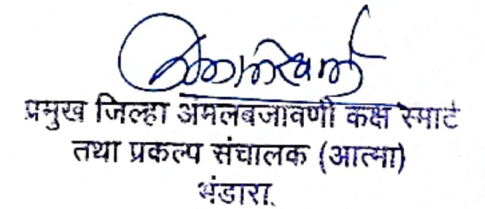 प्रमुख जिल्हा अंमलबजावणी कक्ष स्मार्ट
तथा प्रकल्प संचालक (आत्मा)
भंडारा.